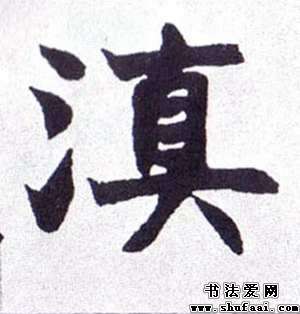 滇
书法爱网
www.shufaai.com